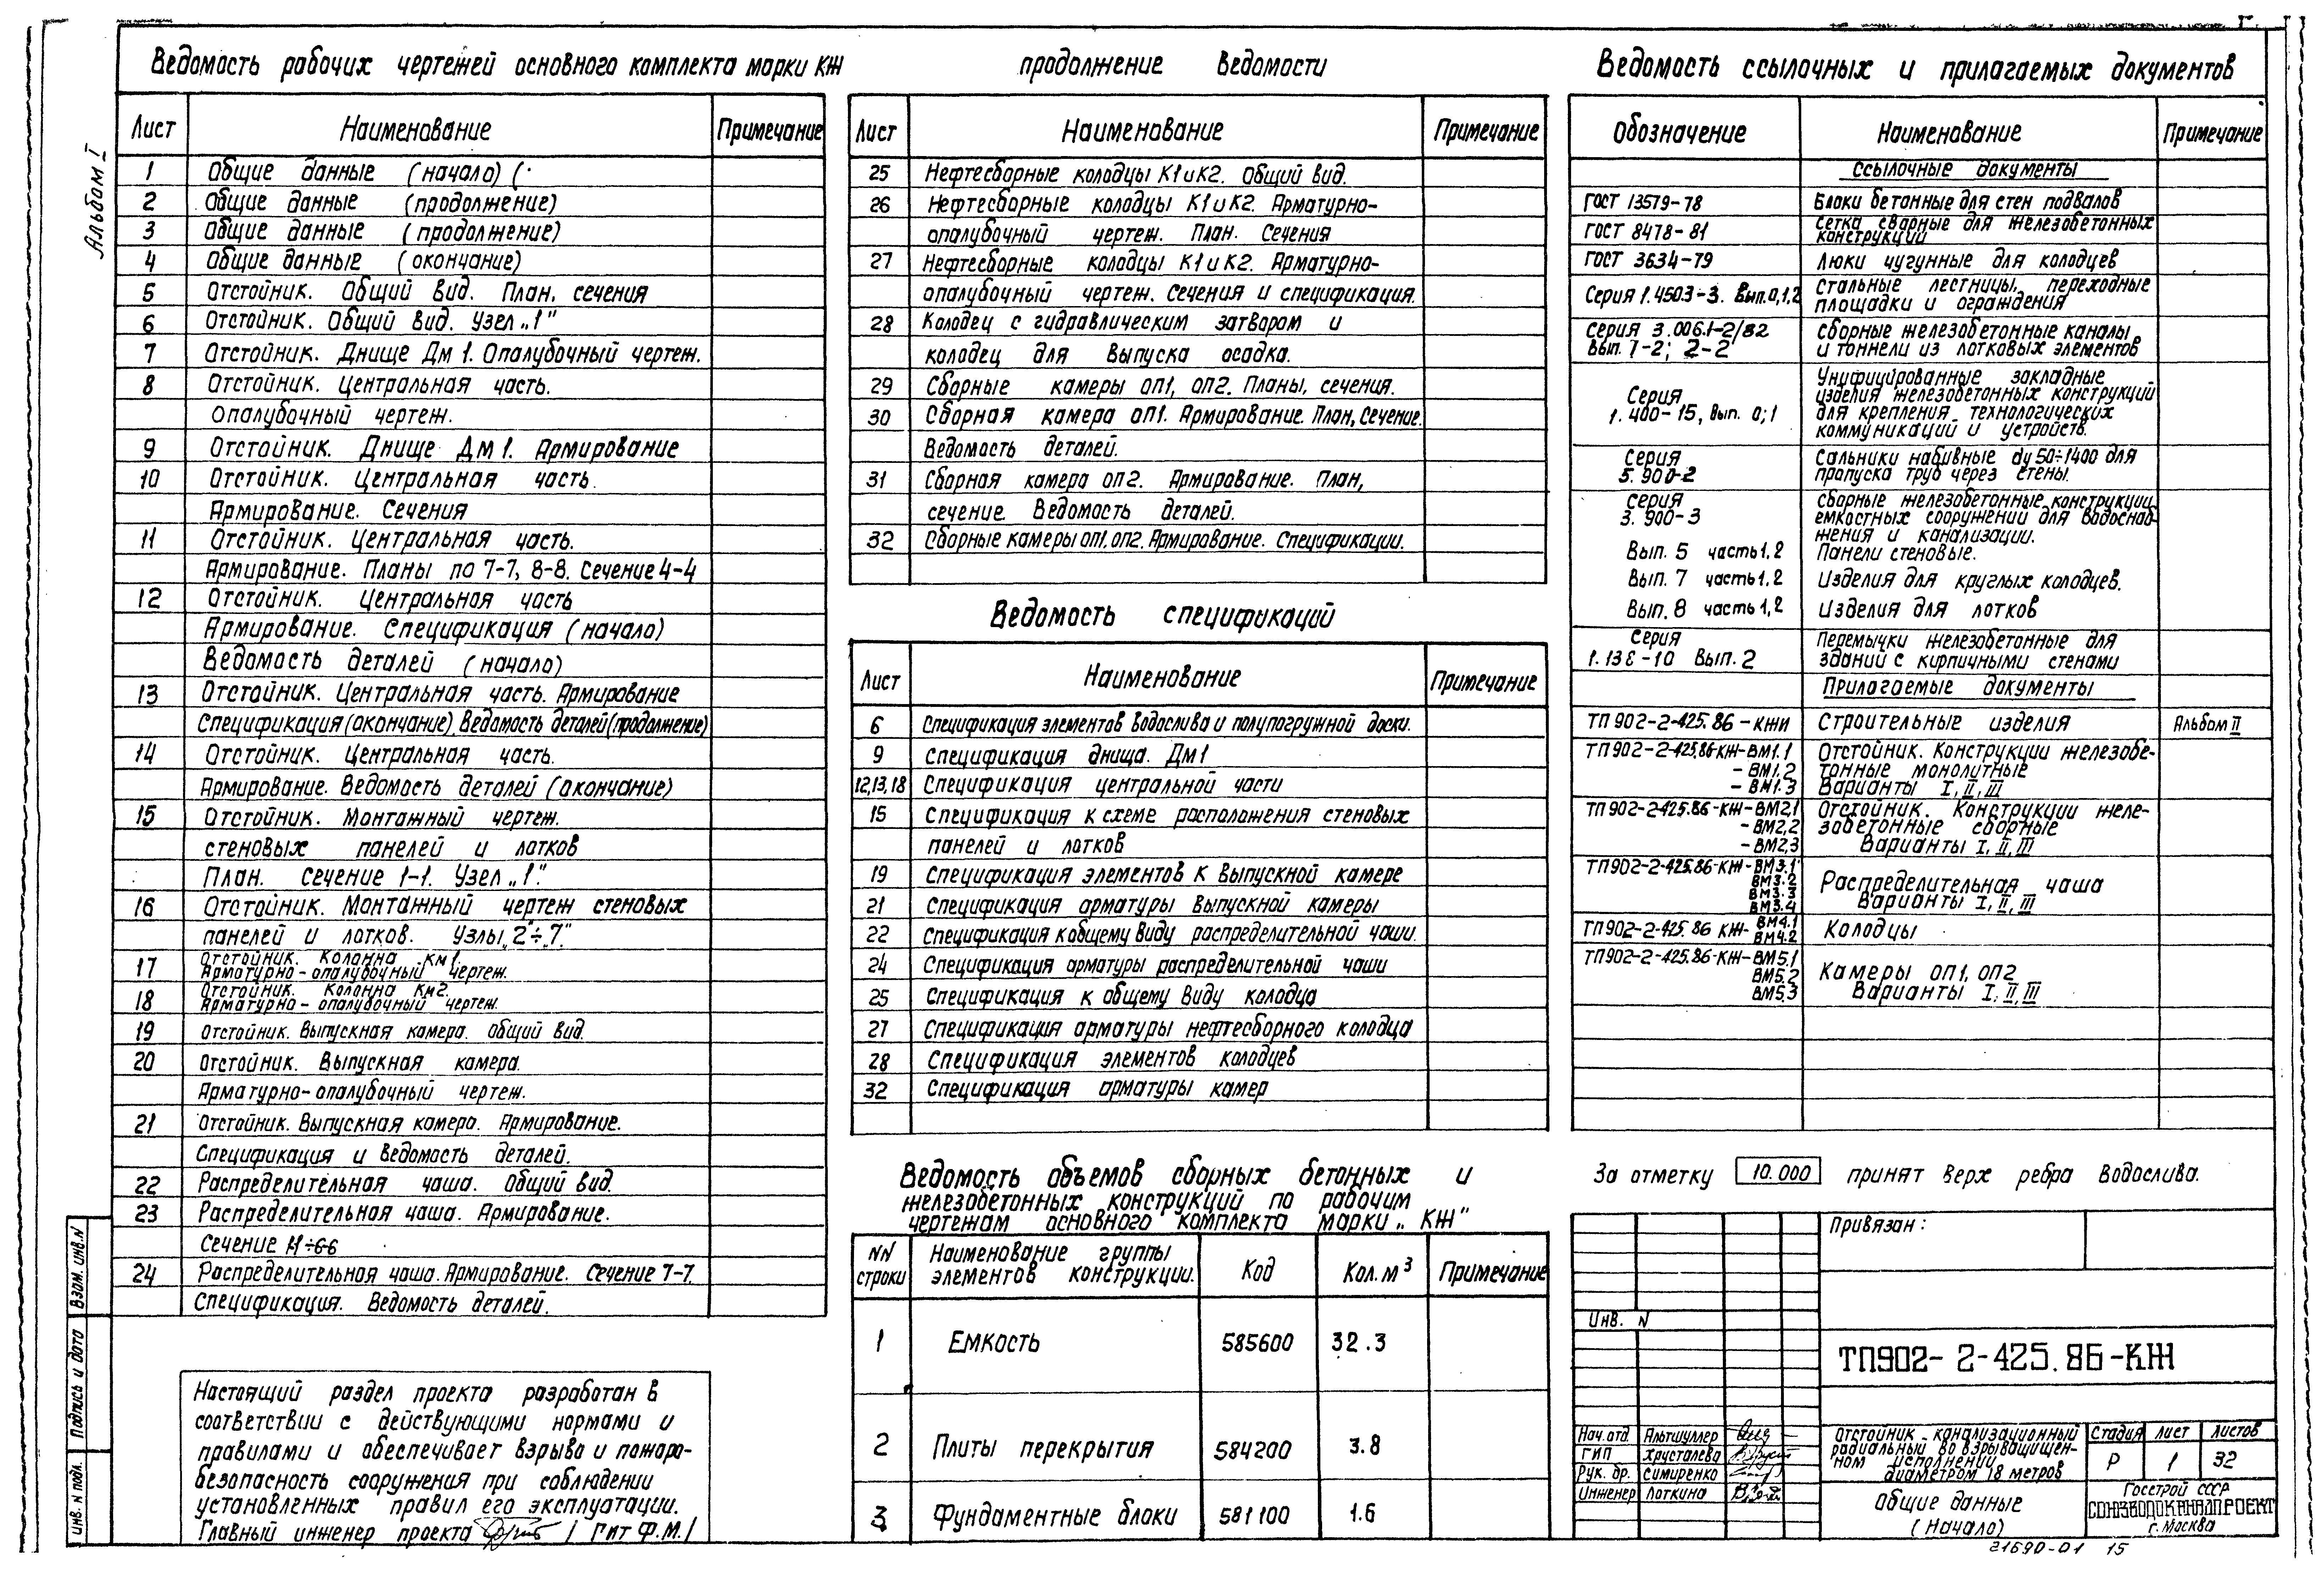 Альбом I
Ведомость рабочих чертежей основного комплекта марки КЖ
Лист Наименование Примечание
1 Общие данные (начало)
2 Общие данные (продолжение)
3 Общие данные (продолжение)
4 Общие данные (окончание)
5 Отстойник. Общий вид. План, сечения
6 Отстойник. Общий вид. Узел „1"
7 Отстойник. Днище Дм 1. Опалубочный чертеж.
8 Отстойник. Центральная часть.
опалубочный чертеж.
9 Отстойник. Днище Дм 1. Армирование
10 Отстойник. Центральная часть.
Армирование. Сечения
11 Отстойник. Центральная часть.
Армирование. Планы по 7-7, 8-8. Сечение 4-4
12 Отстойник. Центральная часть
Армирование. Спецификация (начало)
Ведомость деталей (начало)
13 Отстойник. Центральная часть. Армирование
Спецификация (окончание). Ведомость деталей (продолжение)
14 Отстойник. Центральная часть.
Армирование. Ведомость деталей (окончание)
15 Отстойник. Монтажный чертеж.
стеновых панелей и лотков
План. Сечение 1-1. Узел „1".
16 Отстойник. Монтажный чертеж стеновых
панелей и лотков. Узлы „2÷7"
17 Отстойник. Колонна КМ1.
Арматурно-опалубочный чертеж.
18 Отстойник. Колонна КМ2.
Арматурно-опалубочный чертеж.
19 Отстойник. Выпускная камера. Общий вид.
20 Отстойник. Выпускная камера.
Арматурно-опалубочный чертеж.
21 Отстойник. Выпускная камера. Армирование.
Спецификация и ведомость деталей.
22 Распределительная чаша. Общий вид.
23 Распределительная чаша. Армирование.
Сечение 1-1÷6-6
24 Распределительная чаша. Армирование. Сечение 7-7.
Спецификация. Ведомость деталей.
Настоящий раздел проекта разработан в
соответствии с действующими нормами и
правилами и обеспечивает взрыво и пожаро-
безопасность сооружения при соблюдении
установленных правил его эксплуатации.
Главный инженер проекта / Гит Ф.М./
Взам. инв. N
Подпись и дата
Инв. N подл.
продолжение ведомости
Лист Наименование Примечание
25 Нефтесборные колодцы К1 и К2. Общий вид.
26 Нефтесборные колодцы К1 и К2. Арматурно-
опалубочный чертеж. План. Сечения
27 Нефтесборные колодцы К1 и К2. Арматурно-
опалубочный чертеж. Сечения и спецификация.
28 Колодец с гидравлическим затвором и
колодец для выпуска осадка.
29 Сборные камеры оп1, оп2. Планы, сечения.
30 Сборная камера оп1. Армирование. План, Сечение.
Ведомость деталей.
31 Сборная камера оп2. Армирование. План,
сечение. Ведомость деталей.
32 Сборные камеры оп1, оп2. Армирование. Спецификации.
Ведомость спецификаций
Лист Наименование Примечание
6 Спецификация элементов водослива и полупогружной доски.
9 Спецификация днища. Дм1
12,13,18 Спецификация центральной части
15 Спецификация к схеме расположения стеновых
панелей и лотков
19 Спецификация элементов к выпускной камере
21 Спецификация арматуры выпускной камеры
22 Спецификация к общему виду распределительной чаши.
24 Спецификация арматуры распределительной чаши
25 Спецификация к общему виду колодца
27 Спецификация арматуры нефтесборного колодца
28 Спецификация элементов колодцев
32 Спецификация арматуры камер
Ведомость объемов сборных бетонных и
железобетонных конструкций по рабочим
чертежам основного комплекта марки „КЖ"
NN строки Наименование группы элементов конструкции. Код Кол. м³ Примечание
1 Емкость 585600 32.3
2 Плиты перекрытия 584200 3.8
3 Фундаментные блоки 581100 1.6
Ведомость ссылочных и прилагаемых документов
Обозначение Наименование Примечание
Ссылочные документы
ГОСТ 13579-78 Блоки бетонные для стен подвалов
ГОСТ 8478-81 Сетка сварные для железобетонных
конструкций
ГОСТ 3634-79 Люки чугунные для колодцев
Серия 1.450.3-3. Вып. 0,1,2 Стальные лестницы, переходные
площадки и ограждения
Серия 3.006.1-2/82 Сборные железобетонные каналы
Вып. 1-2; 2-2 и тоннели из лотковых элементов
Серия Унифицированные закладные
1.400-15, Вып. 0;1 изделия железобетонных конструкций
для крепления технологических
коммуникаций и устройств.
Серия Сальники набивные ду 50÷1400 для
5.900-2 пропуска труб через стены.
Серия Сборные железобетонные конструкции
3.900-3 емкостных сооружений для водоснаб-
жения и канализации.
Вып. 5 часть 1,2 Панели стеновые.
Вып. 7 часть 1,2 Изделия для круглых колодцев.
Вып. 8 часть 1,2 Изделия для лотков
Серия Перемычки железобетонные для
1.138-10 Вып. 2 зданий с кирпичными стенами
Прилагаемые документы
ТП 902-2-425.86-КЖИ Строительные изделия Альбом II
ТП902-2-425.86-КЖ-ВМ1.1 Отстойник. Конструкции железобе-
-ВМ1.2 тонные монолитные
-ВМ1.3 Варианты I, II, III
ТП902-2-425.86-КЖ-ВМ2.1 Отстойник. Конструкции желе-
-ВМ2.2 зобетонные сборные
-ВМ2.3 Варианты I, II, III
ТП902-2-425.86-КЖ-ВМ3.1
ВМ3.2 Распределительная чаша
ВМ3.3 Варианты I, II, III
ВМ3.4
ТП902-2-425.86 КЖ-ВМ4.1 Колодцы
ВМ4.2
ТП902-2-425.86-КЖ-ВМ5.1
ВМ5.2 Камеры оп1, оп2
ВМ5.3 Варианты I, II, III
За отметку 10.000 принят верх ребра водослива.
Привязан:
Инв. N
ТП902-2-425.86-КЖ
Нач. отд Альтшуллер
ГИП Хрусталева
Рук. бр. Симиренко
Инженер Лоткина
Отстойник канализационный
радиальный во взрывозащищен-
ном исполнении
диаметром 18 метров
Стадия Лист Листов
Р 1 32
Общие данные
(Начало)
Госстрой СССР
СОЮЗВОДОКАНАЛПРОЕКТ
г. Москва
21690-01 15